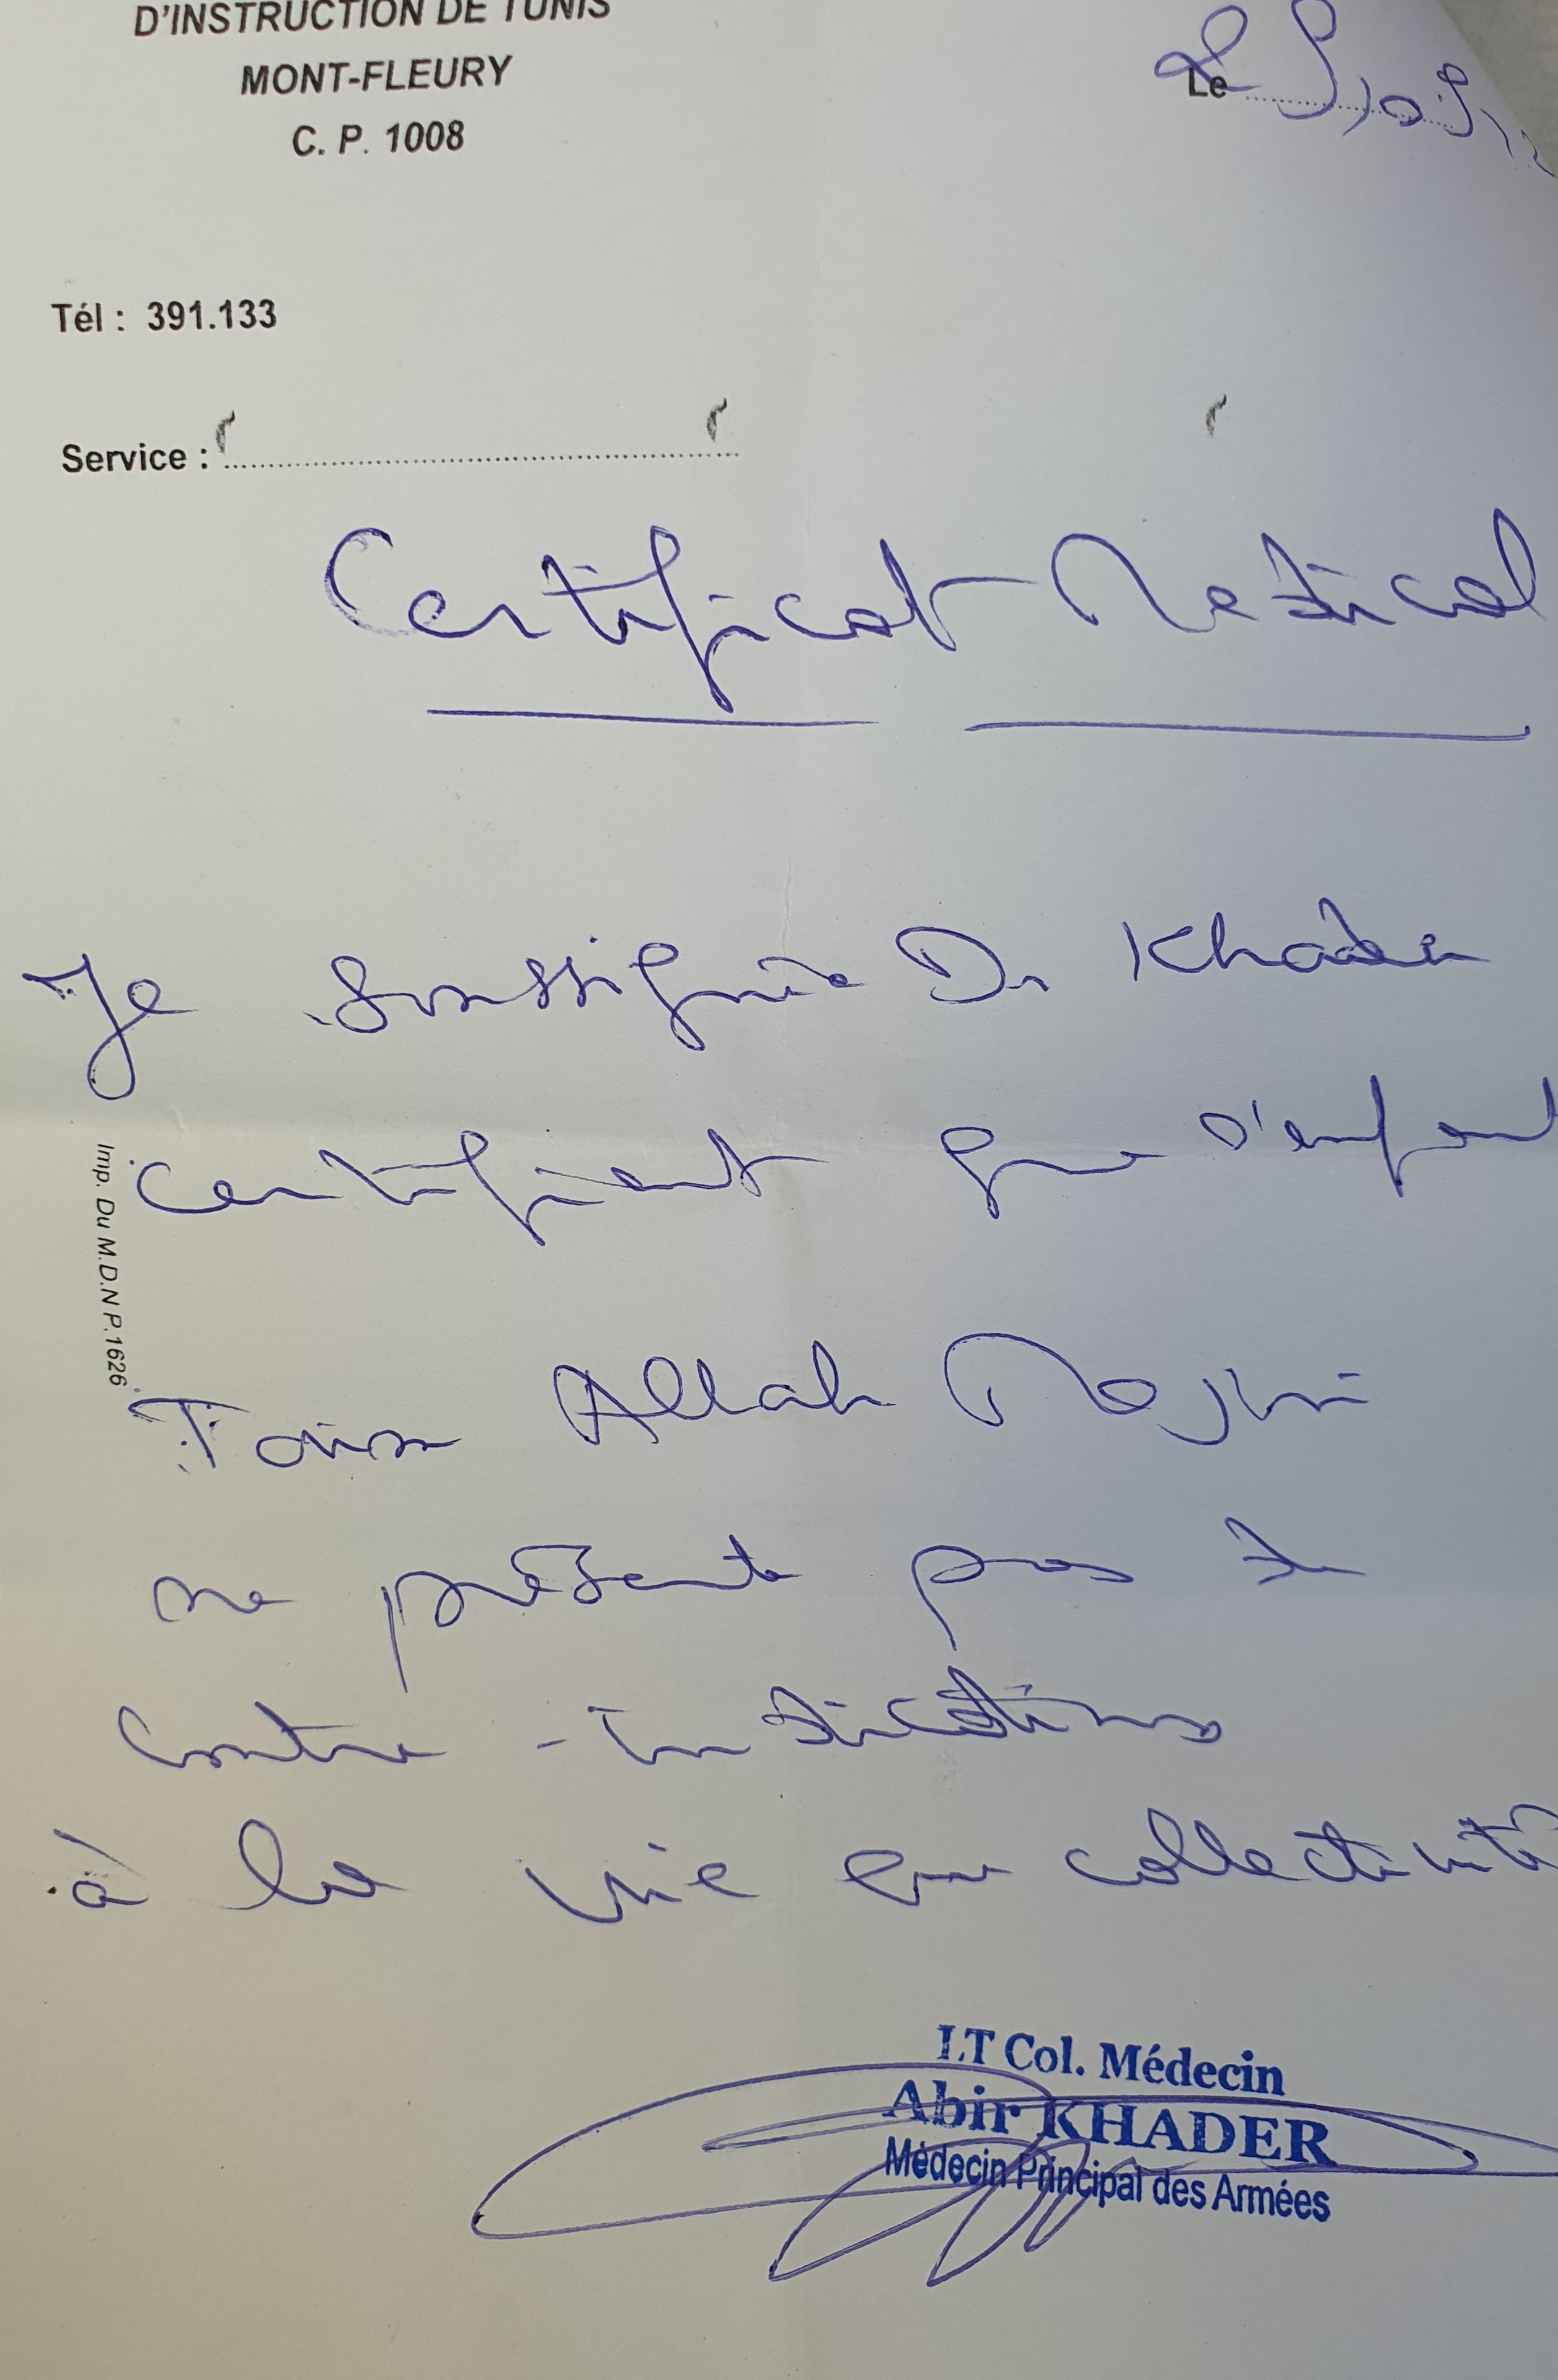 D'INSTRUCTION DE TUNIS
MONT-FLEURY
C. P. 1008
Le
Tél : 391.133
Service :
Certificat Medical
Je soussignée Dr Khader
certifient que l'enfant
Allah Mejri
ne présente pas de
contre-indications
à la vie en collectivité
Imp. Du M.D.N P.1626
LT Col. Médecin
Abir KHADER
Médecin Principal des Armées